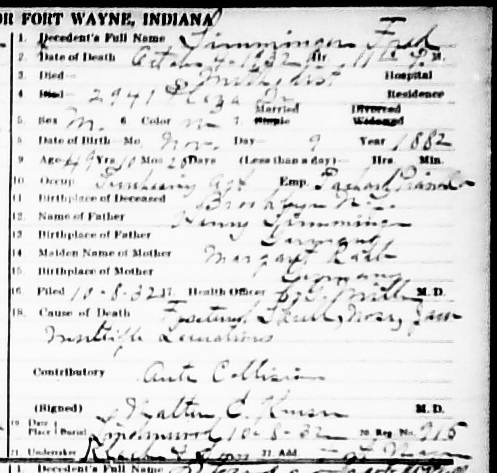 OR FORT WAYNE, INDIANA
1. Decedent's Full Name Timminger Fred
2. Date of Death October 4-1932 Hr. 11 15 P. M.
3. Died— Methodist Hospital
4. Died— 2941 Plaza Dr. Residence
Married Divorced
5. Sex M. 6 Color W 7. Single Widowed
8. Date of Birth— Mo. Nov. Day— 9 Year 1882
9. Age 49 Yrs. 10 Mos 25 Days (Less than a day)— Hrs. Min.
10. Occup. Purchasing Agt Emp. Packard Piano Co
11. Birthplace of Deceased Brooklyn N.Y.
12. Name of Father Henry Timminger
13. Birthplace of Father Germany
14. Maiden Name of Mother Margaret
15. Birthplace of Mother Germany
16. Filed 10-8-32 17. Health Officer M. D.
18. Cause of Death Fractured Skull, Nose, Jaw
Multiple Lacerations
Contributory Auto Collision
(Signed) Walter E. Kruse M. D.
19. Date / Place Burial Lindenwood 10-8-32 20. Reg. No. 915
21. Undertaker & Sons 22. Add. Ft Wayne
1. Decedent's Full Name